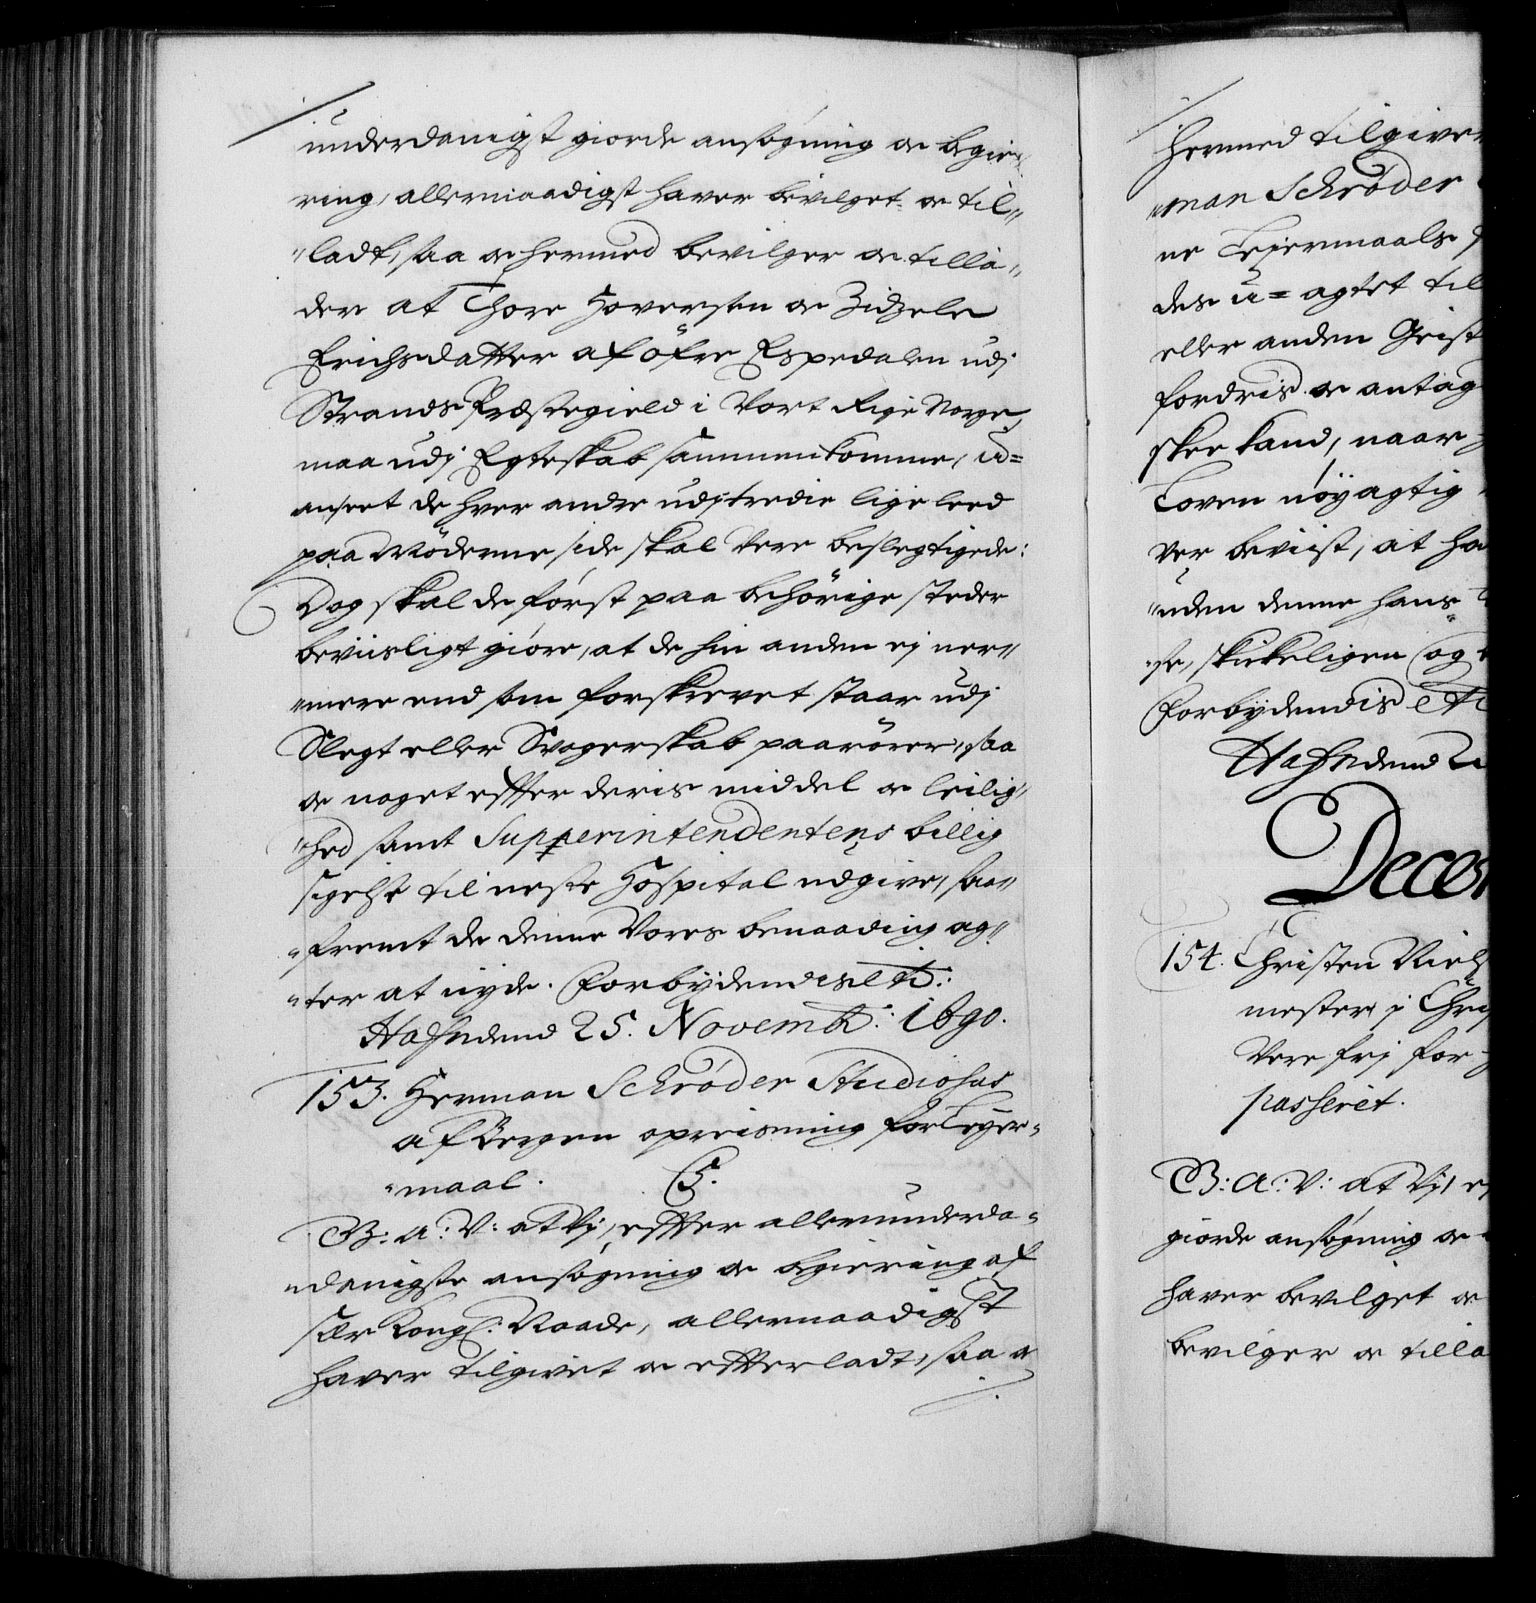 underdanigst giorde ansøgning oc begie-
ring, allernaadigst haver bevilget oc til-
"ladt, saa oc hermed bevilger oc tilla-
der at Thore Hoversen oc Zidzele
Erichsdatter af öfre Espedalen udj
Strands Præstegield i Vort Rige Norge,
maa udj Egteskab sammenkomme, u=
anseet de hver andre udj tredie lige leed
paa Mödrene side skal Vere beslegtigede:
Dog skal de först paa behörige steder
beviisligt giöre, at de hin anden ej ner-
"mere end som forskrevet staar udj
Slegt eller Svogerskab paarörer, saa
oc noget effter deris middel oc leilig-
"hed samt Supperintendentens billig
sigelse til neste Hospital udgive, saa-
"fremt de denne Vores benaading ag-
"ter at nyde. Forbydendis etc:
Hafn den 25. Novemb: 1690.
153. Herman Schröder Studiosus
af Bergen opreisning for Leyer-
"maal. C5.
G: A: V: at Vj, effter allerunderda-
"danigste ansøgning oc begiering af
sær Kongl: Naade, allernaadigst
haver tilgivet oc effterladt, saa oc
hermed tilgive
"man Schröder
ne Leiermaals
des u=agtet til
eller anden Geist
fordris oc antag
skee kand, naar
Loven nöyagtig
ver beviist, at ha
"uden denne hans
"se, skikeligen og
Forbydendis etc
Hafn den 2
Decem
154. Christen Niels
mester i Chri
Vere frj for
passeret.
G: A: V: at Vj, e
giorde ansøgning oc
haver bevilget oc
bevilger oc tilla